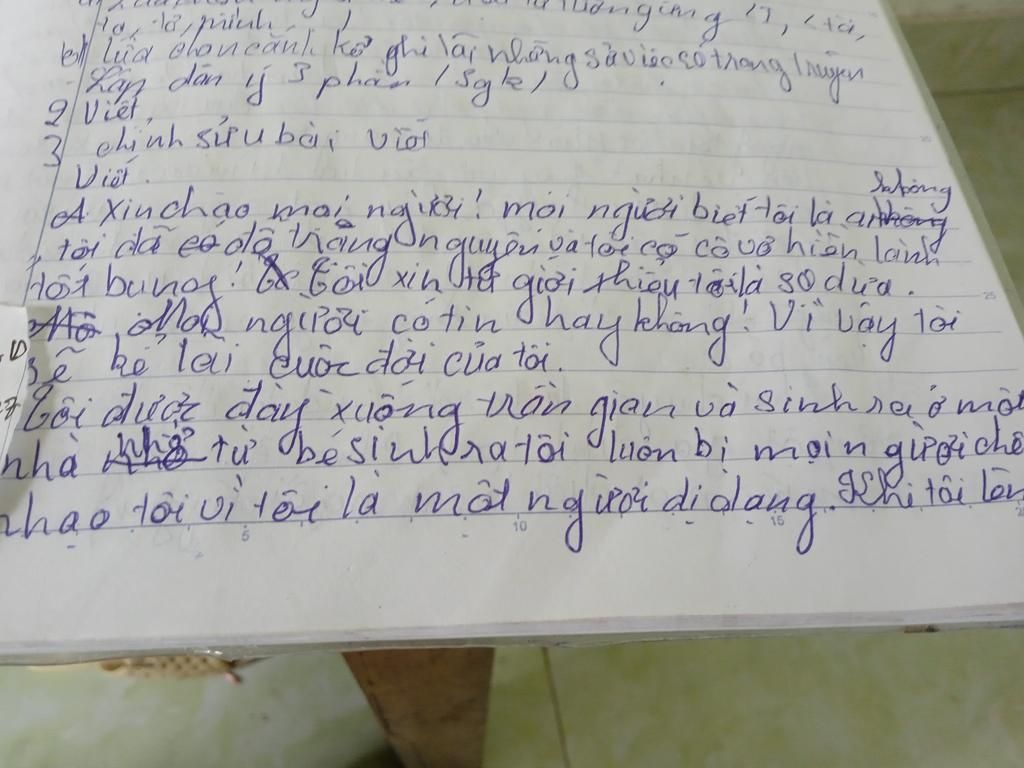 ta, tớ, mình, )
e) lựa chọn cảnh kể ghi lại những sử việc có trong truyện
Lập dàn ý 3 phần (sgk)
2 Viết,
3 chỉnh sửu bài viết
Viết.
A Xin chào mọi người! mọi người biết tôi là ai không
không
tôi đã có độ trạng nguyên và tôi có cô vỡ hiền lành
tốt bung! Tôi xin giới thiệu tôi là sọ dừa.
Mọi người có tin hay không! Vì vậy tôi
sẽ kể lại cuộc đời của tôi.
Tôi được đày xuống trần gian và sinh ra ở một
nhà từ bé sinh ra tôi luôn bị mọi người chê
nhạo tôi vì tôi là một người dị dạng. Khi tôi lớn
5 10 15
25